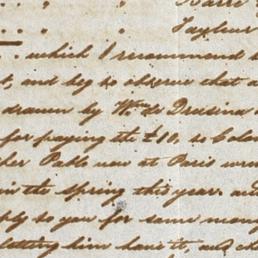 " " Barre
" " Tayleur
. which I recommend
t, and beg to observe that a
drawn by Wm de Drusina
for paying the £10, so
her Pable now at Paris
in the spring this year. and
ply to you for some mon
letting him have it, and